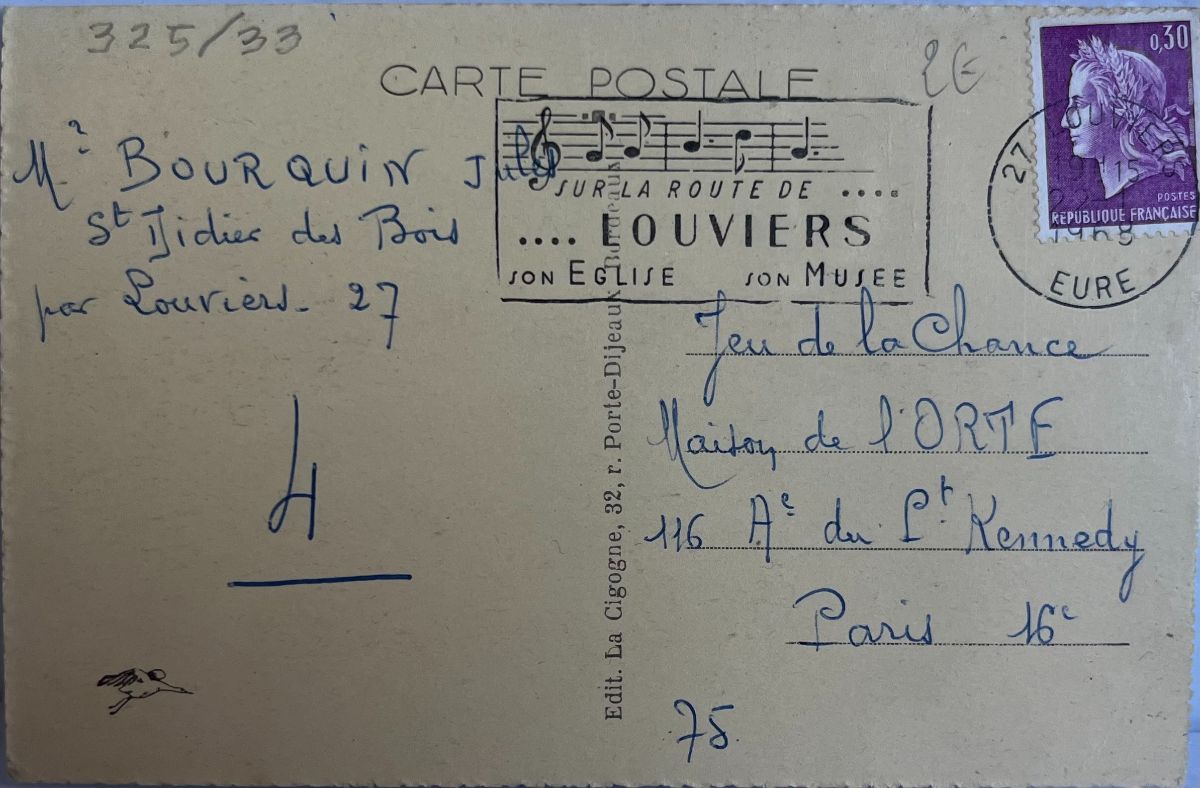 325/33
CARTE POSTALE
2€
0,30
POSTES
REPUBLIQUE FRANÇAISE
27 LOUVIERS
1968
EURE
SUR LA ROUTE DE ....
.... LOUVIERS
SON EGLISE SON MUSEE
Mr BOURQUIN Jules
St Didier des Bois
par Louviers - 27
4
Edit. La Cigogne, 32, r. Porte-Dijeaux Bordeaux
Jeu de la Chance
Maison de l'ORTF
116 Ae du Pt Kennedy
Paris 16e
75